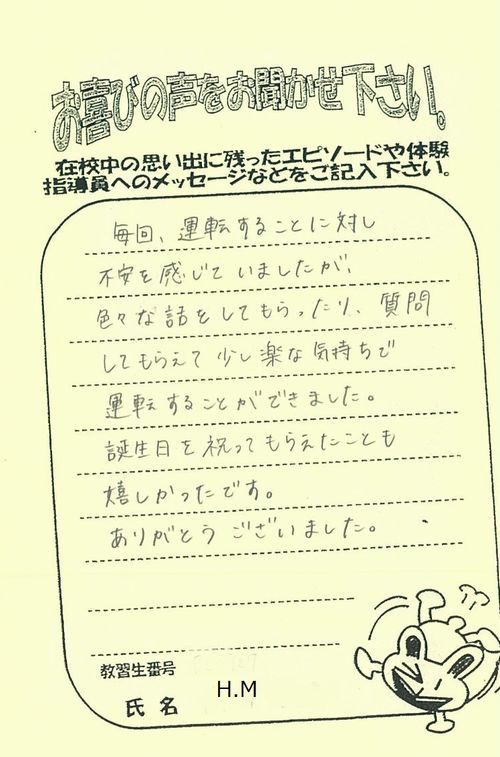 お喜びの声をお聞かせ下さい。
在校中の思い出に残ったエピソードや体験
指導員へのメッセージなどをご記入下さい。
毎回、運転することに対し
不安を感じていましたが、
色々な話をしてもらったり、質問
してもらえて少し楽な気持ちで
運転することができました。
誕生日を祝ってもらえたことも
嬉しかったです。
ありがとうございました。
教習生番号
氏名 H.M